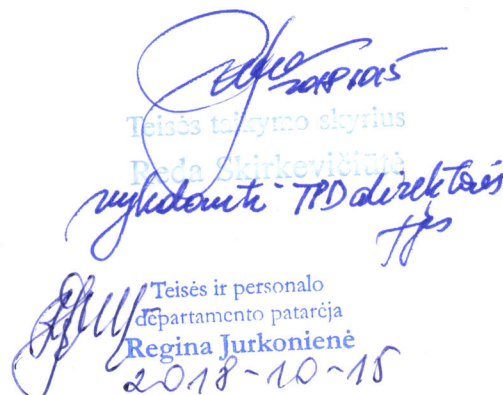 Teisės taikymo skyrius
Reda Skirkevičiūtė
vykdanti TPD direktorės
f-jas
Teisės ir personalo
departamento patarėja
Regina Jurkonienė
2018-10-15